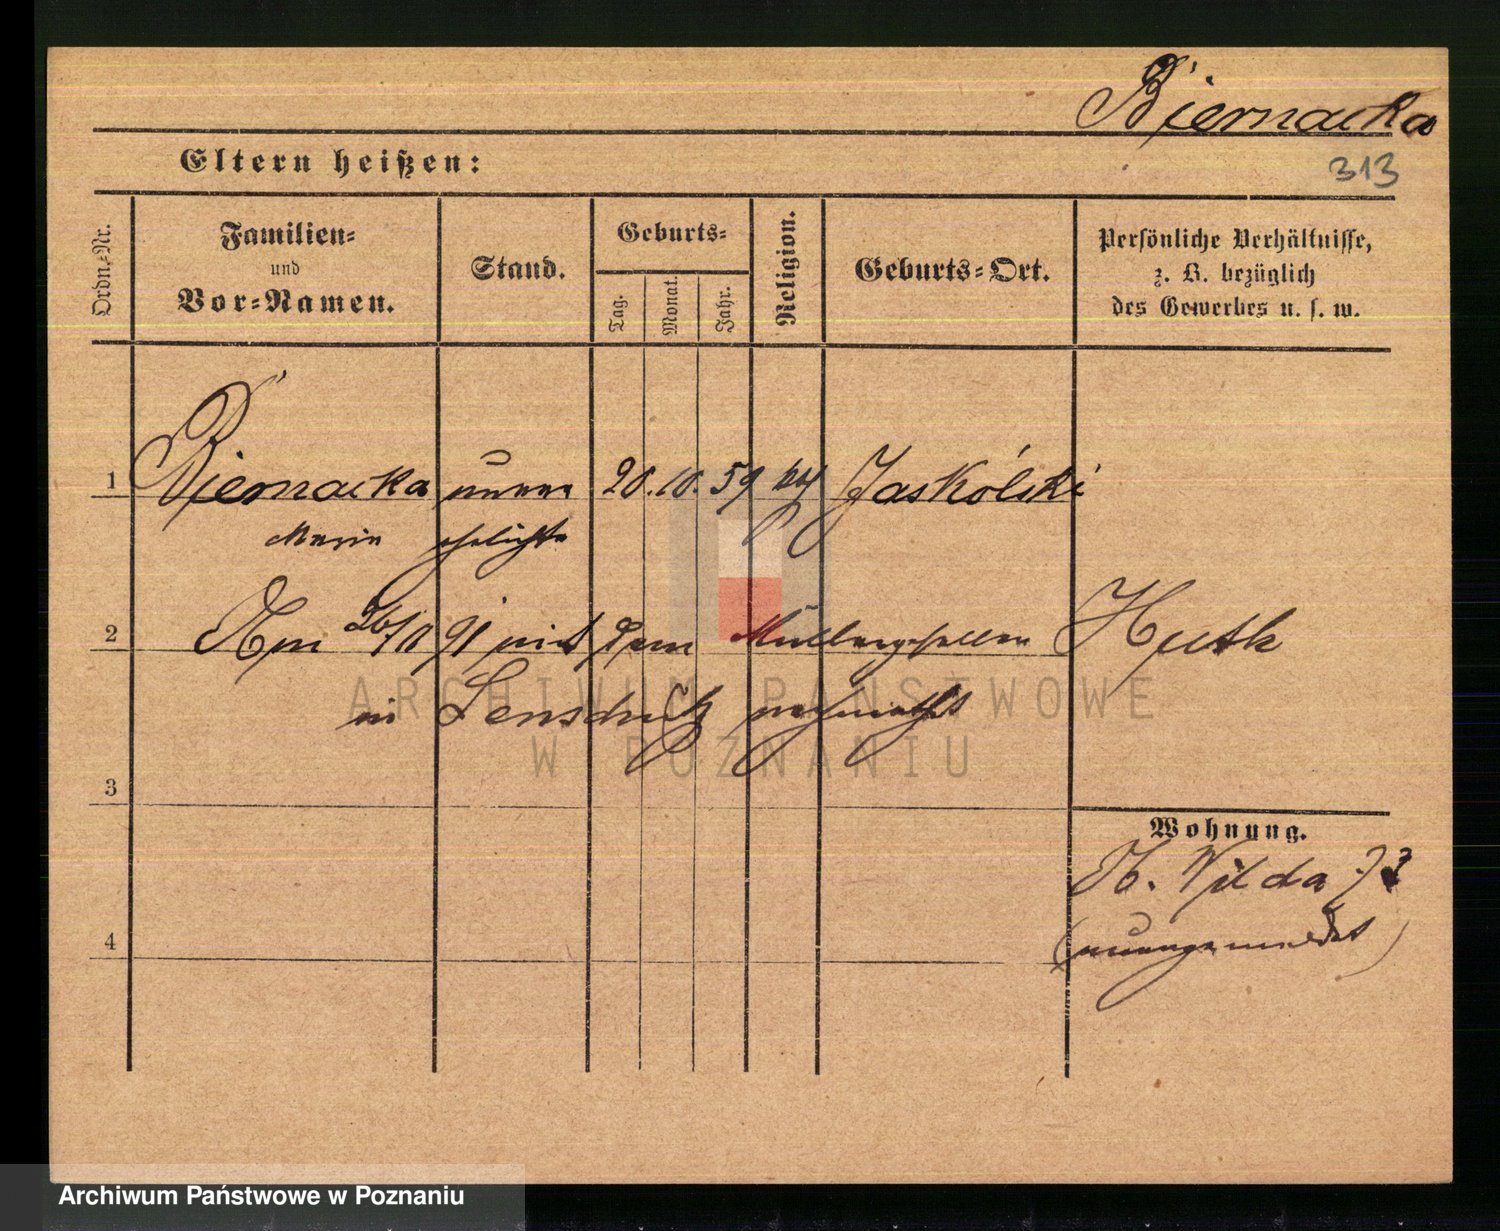 Biernacka
Eltern heißen:
313
Ordn.-Nr.
Familien-
und
Vor-Namen.
Stand.
Geburts-
Tag.
Monat.
Jahr.
Religion.
Geburts-Ort.
Persönliche Verhältnisse,
z. B. bezüglich
des Gewerbes u. s. w.
1 Biernacka unver 20. 10. 59 kth Jaskólski
Maria ehelichte
2 Am 26/11 91 mit dem Müllergesellen Huth
in Lenschütz verheirathet
ARCHIWUM PAŃSTWOWE
W POZNANIU
3
Wohnung.
St. Wilda 73
4 (unangemeldet)
Archiwum Państwowe w Poznaniu